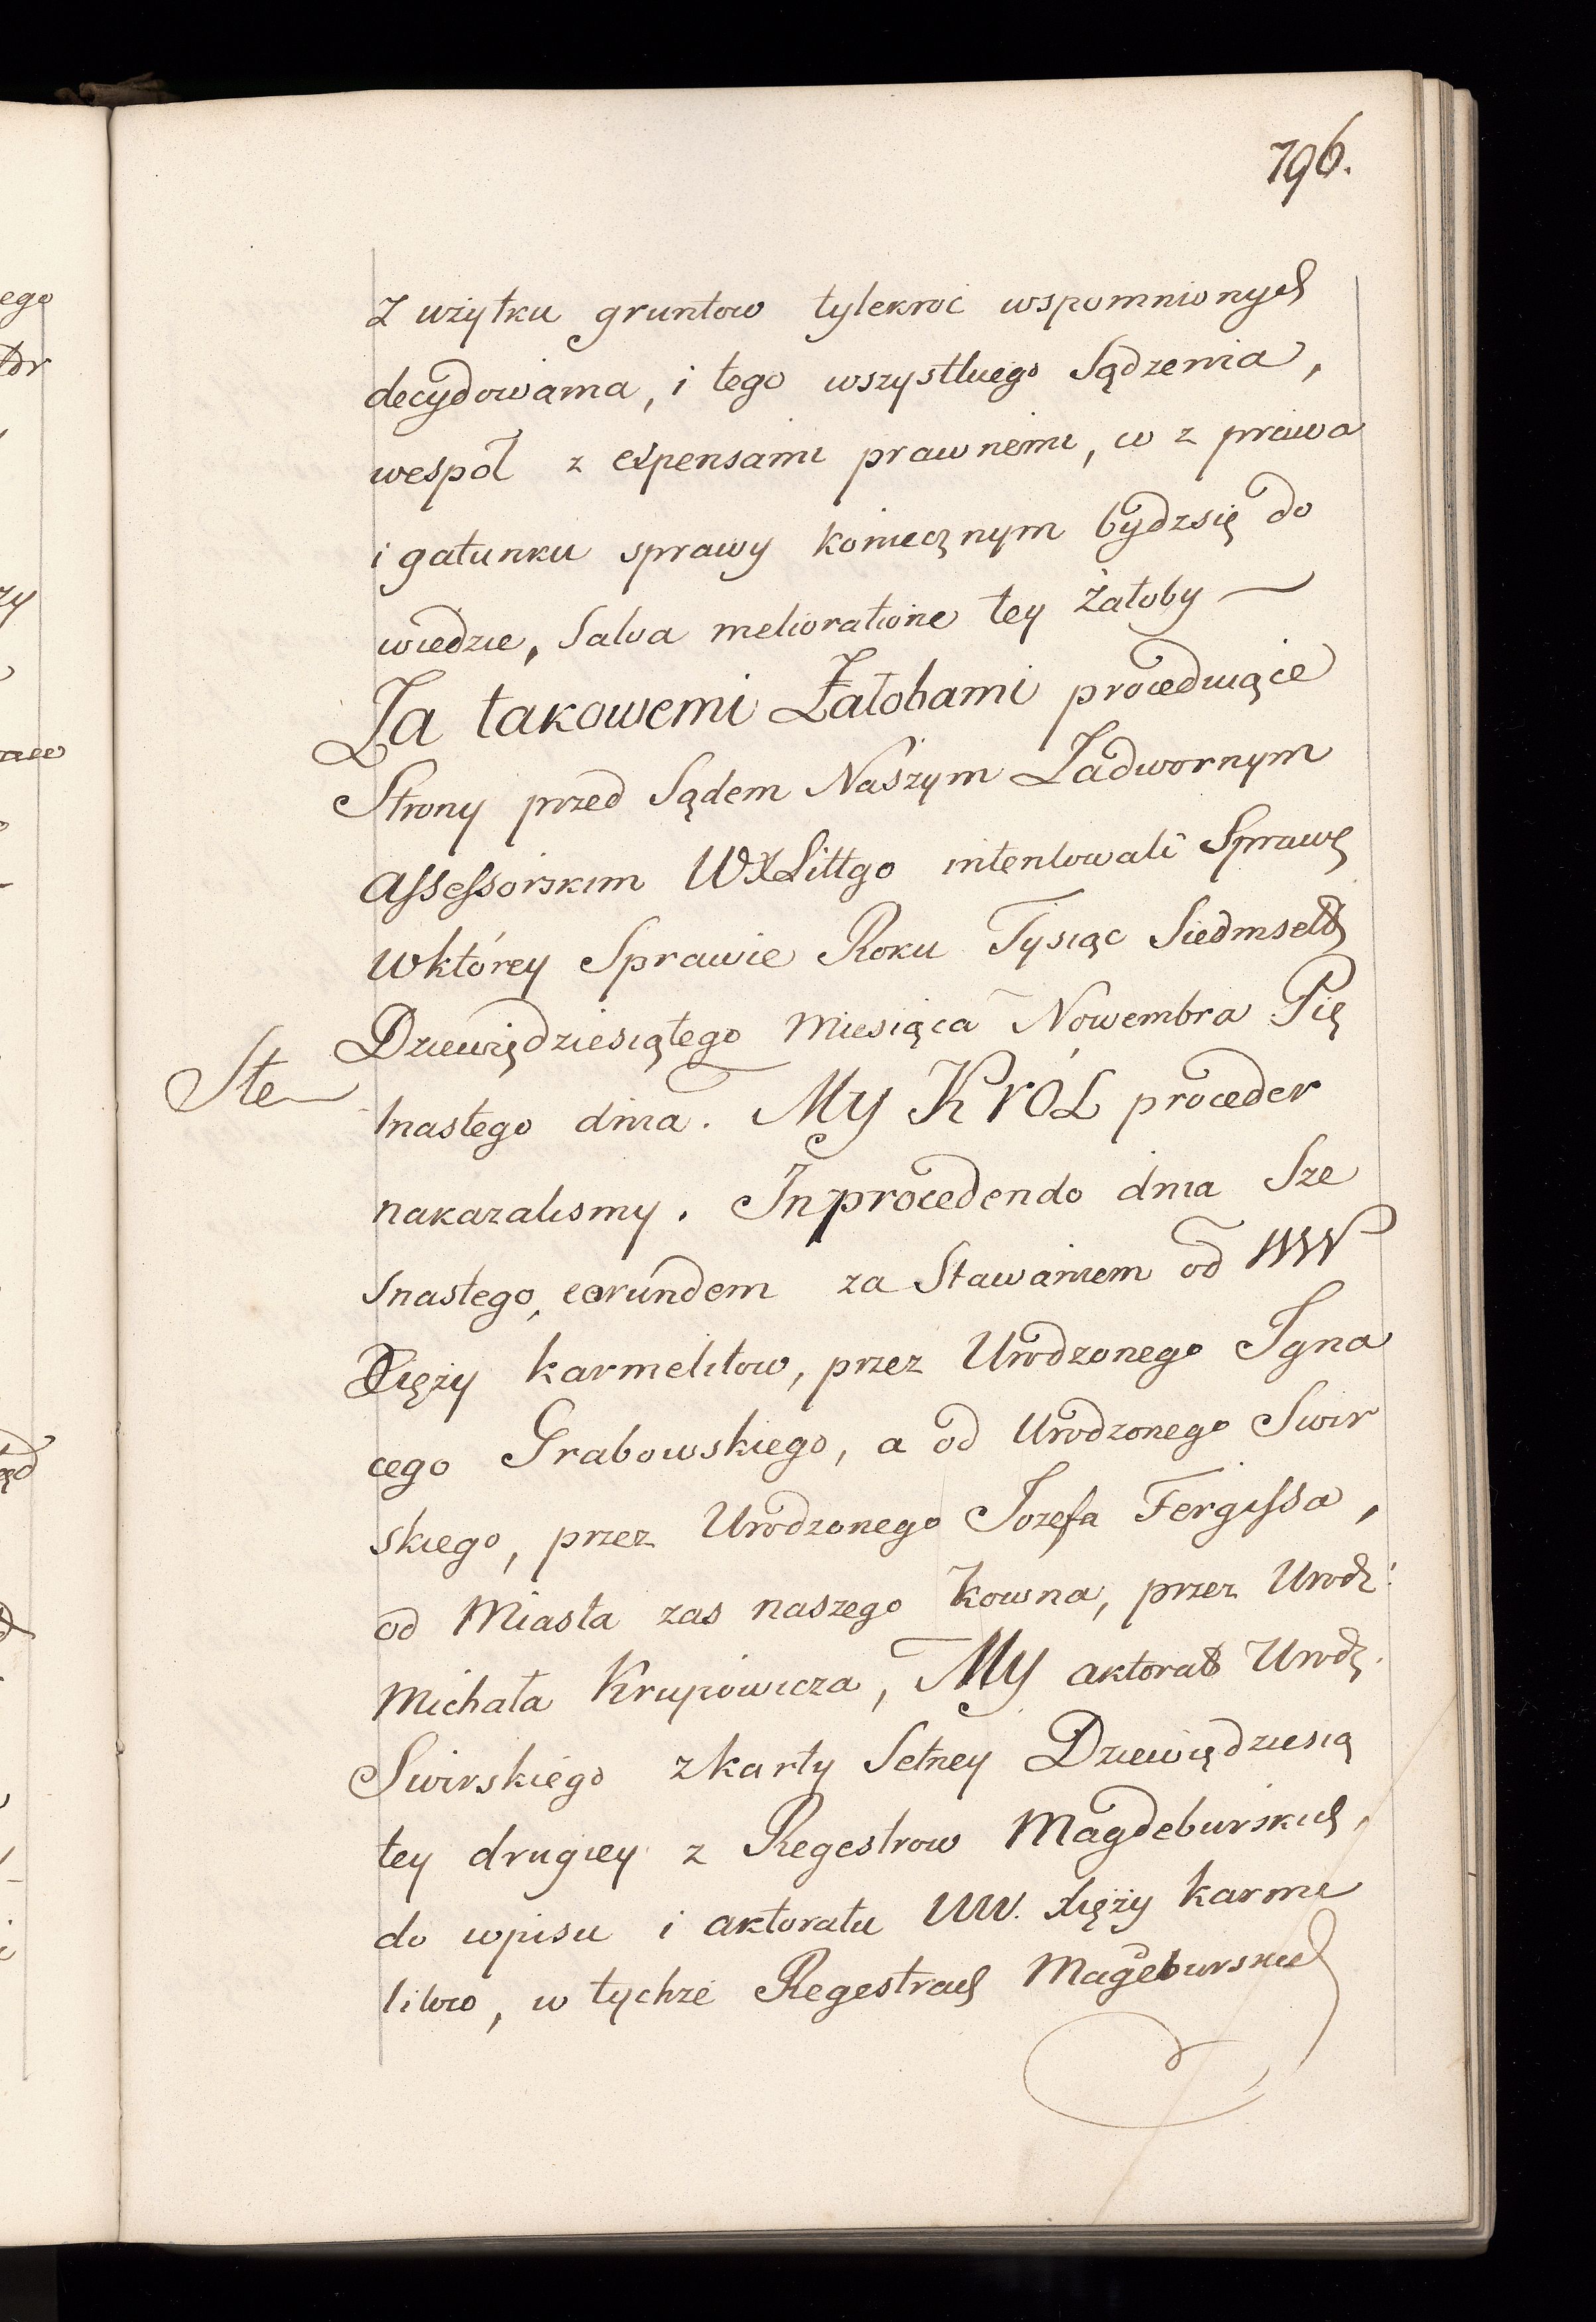 796.
z użytku gruntow tylekroć wspomnionych
decydowania, i tego wszystkiego Sądzenia,
wespół z expensami prawnemi, co z prawa
i gatunku sprawy koniecznym bydz się do
wiedzie, Salva melioratione tey Żałoby —
Za takowemi Żałobami proceduiące
Strony przed Sądem Naszym Zadwornym
Assessorskim WXLittgo intentowali Sprawę
w którey Sprawie Roku Tysiąc Siedmset
Dziewiędziesiątego Miesiąca Nowembra Pię
Ste
tnastego dnia. My KRÓL proceder
nakazalismy. In procedendo dnia Sze
snastego, eorundem za Stawaniem od WW
Xięży Karmelitow, przez Urodzonego Igna
cego Grabowskiego, a od Urodzonego Swir
skiego, przez Urodzonego Jozefa Fergissa,
od Miasta zas naszego Kowna, przez Urodz:
Michała Krupowicza, My aktorat Urodz.
Swirskiego z karty Setney Dziewiędziesią
tey drugiey z Regestrow Magdeburskich,
do wpisu i aktoratu WW. Xięży Karme
litow, w tychże Regestrach Magdeburskich